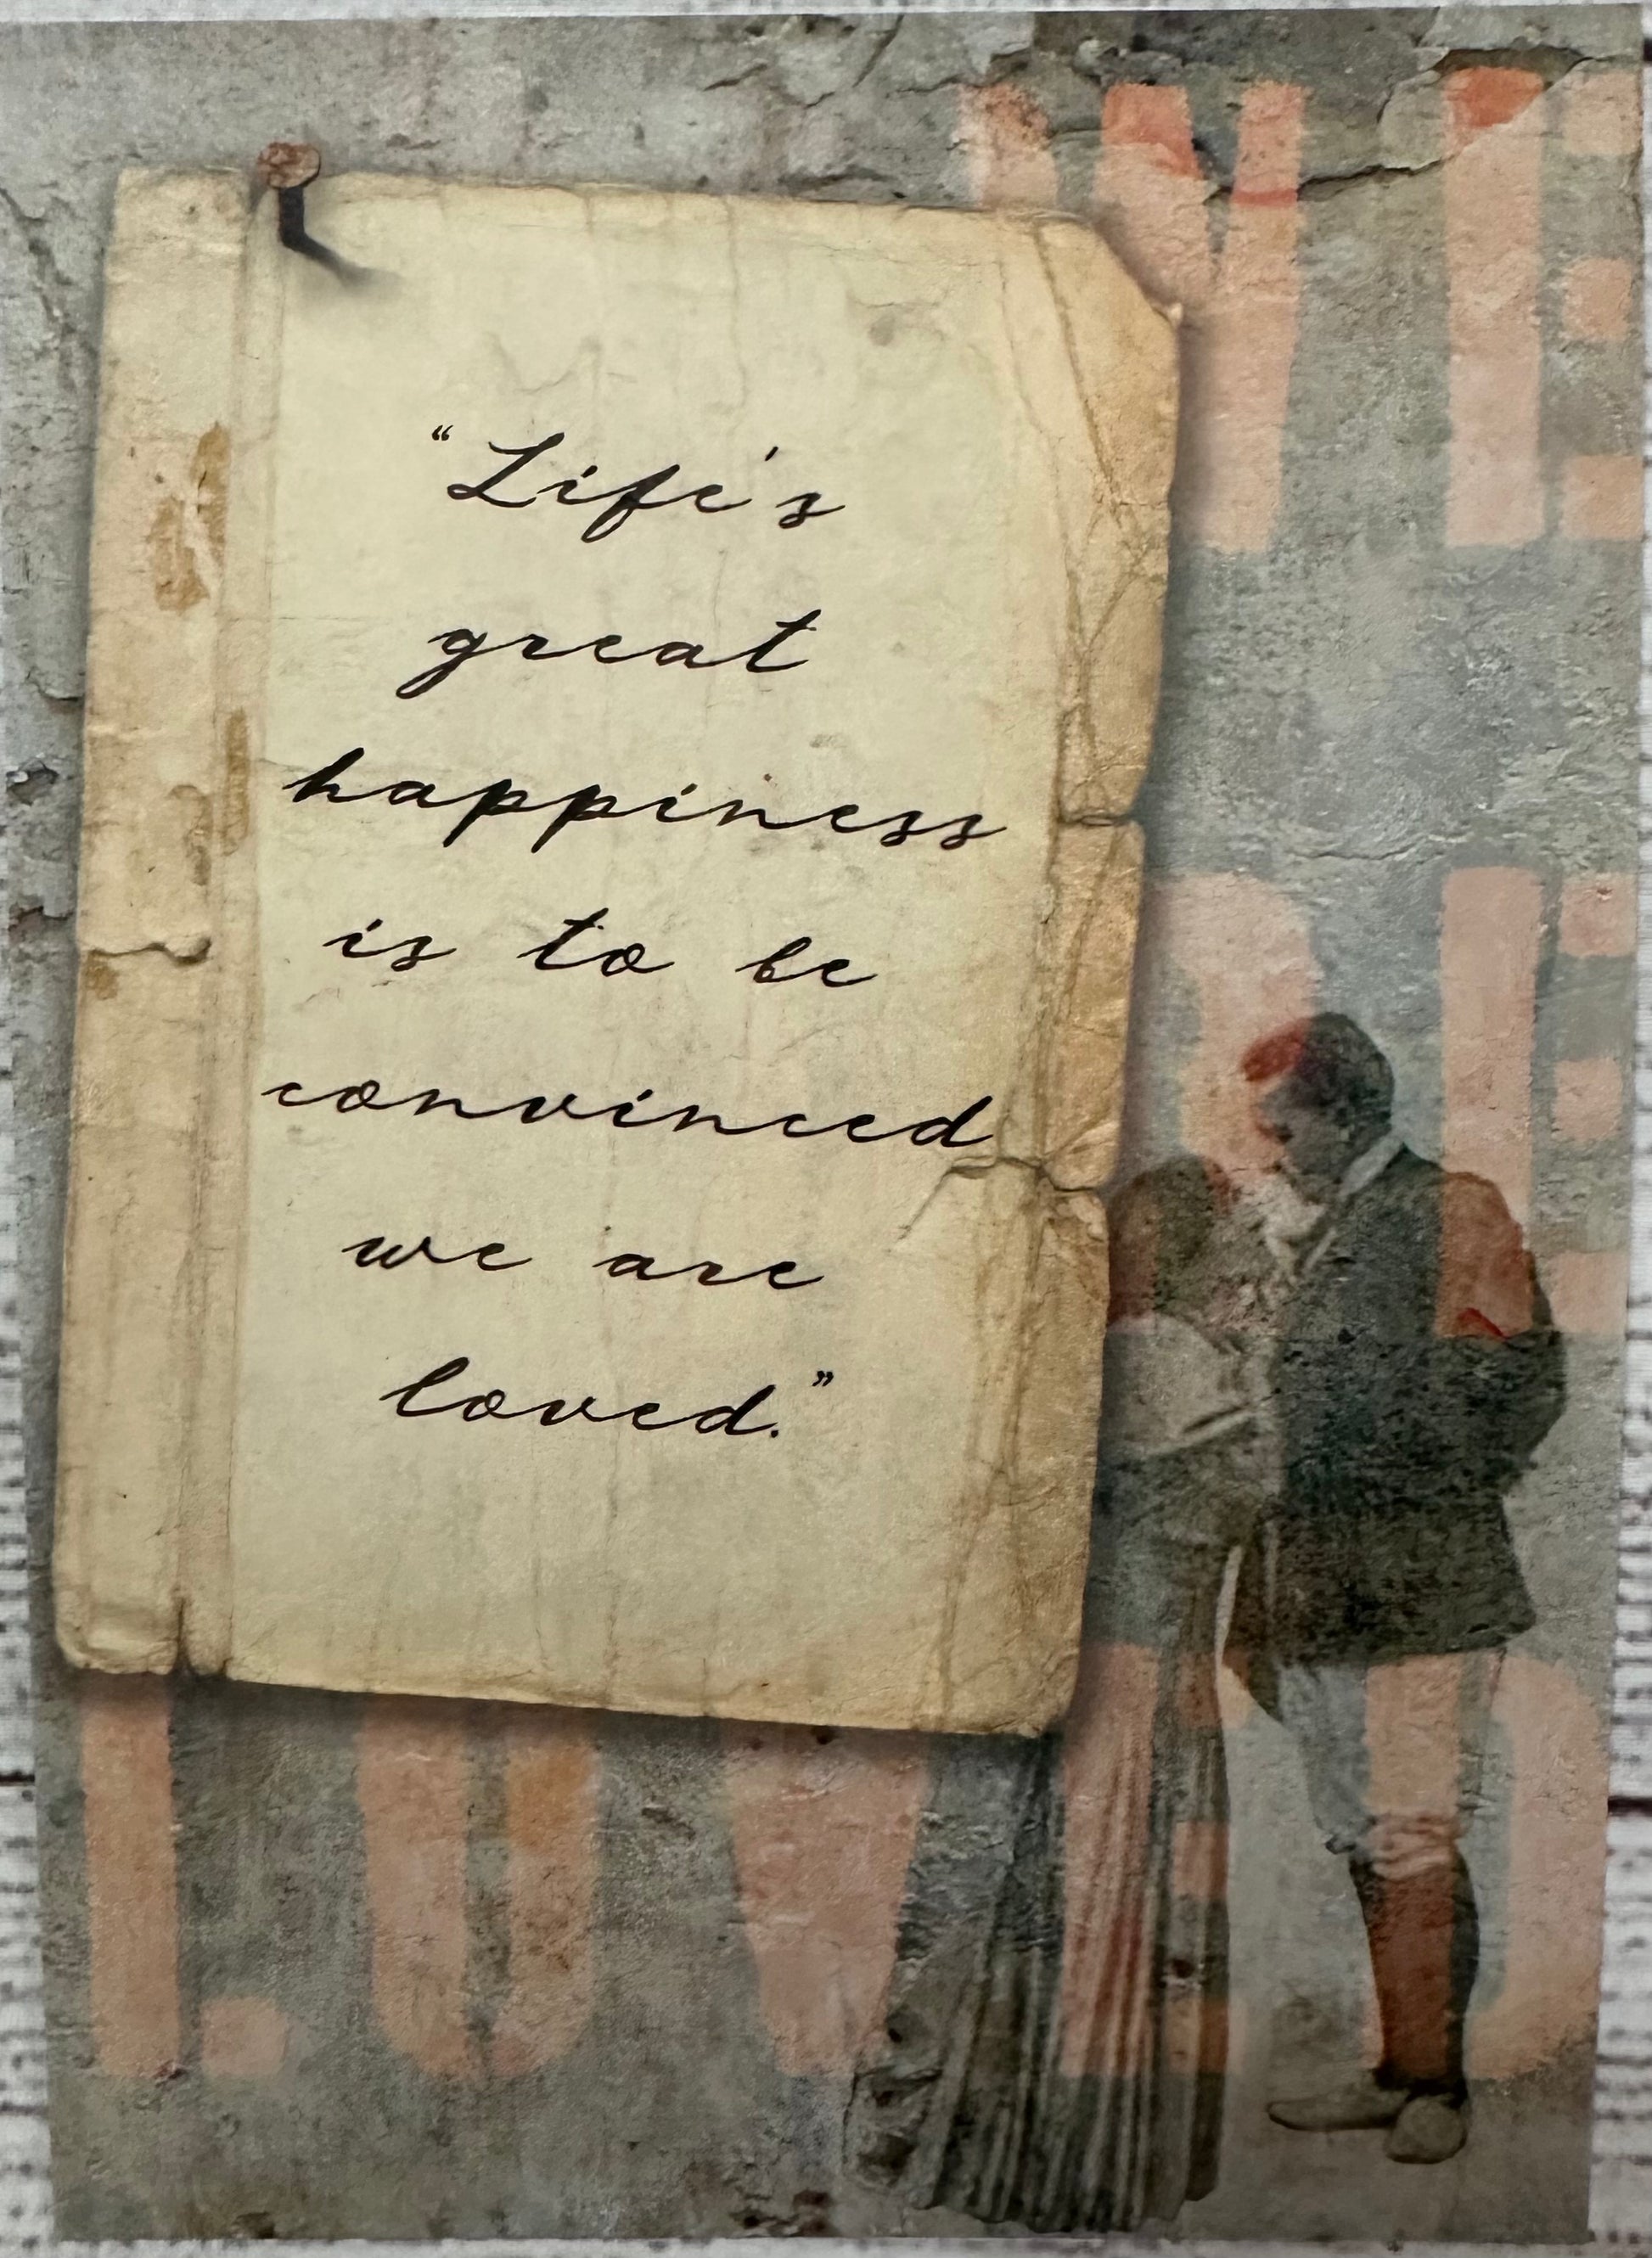 “Life's
great
happiness
is to be
convinced
we are
loved.”